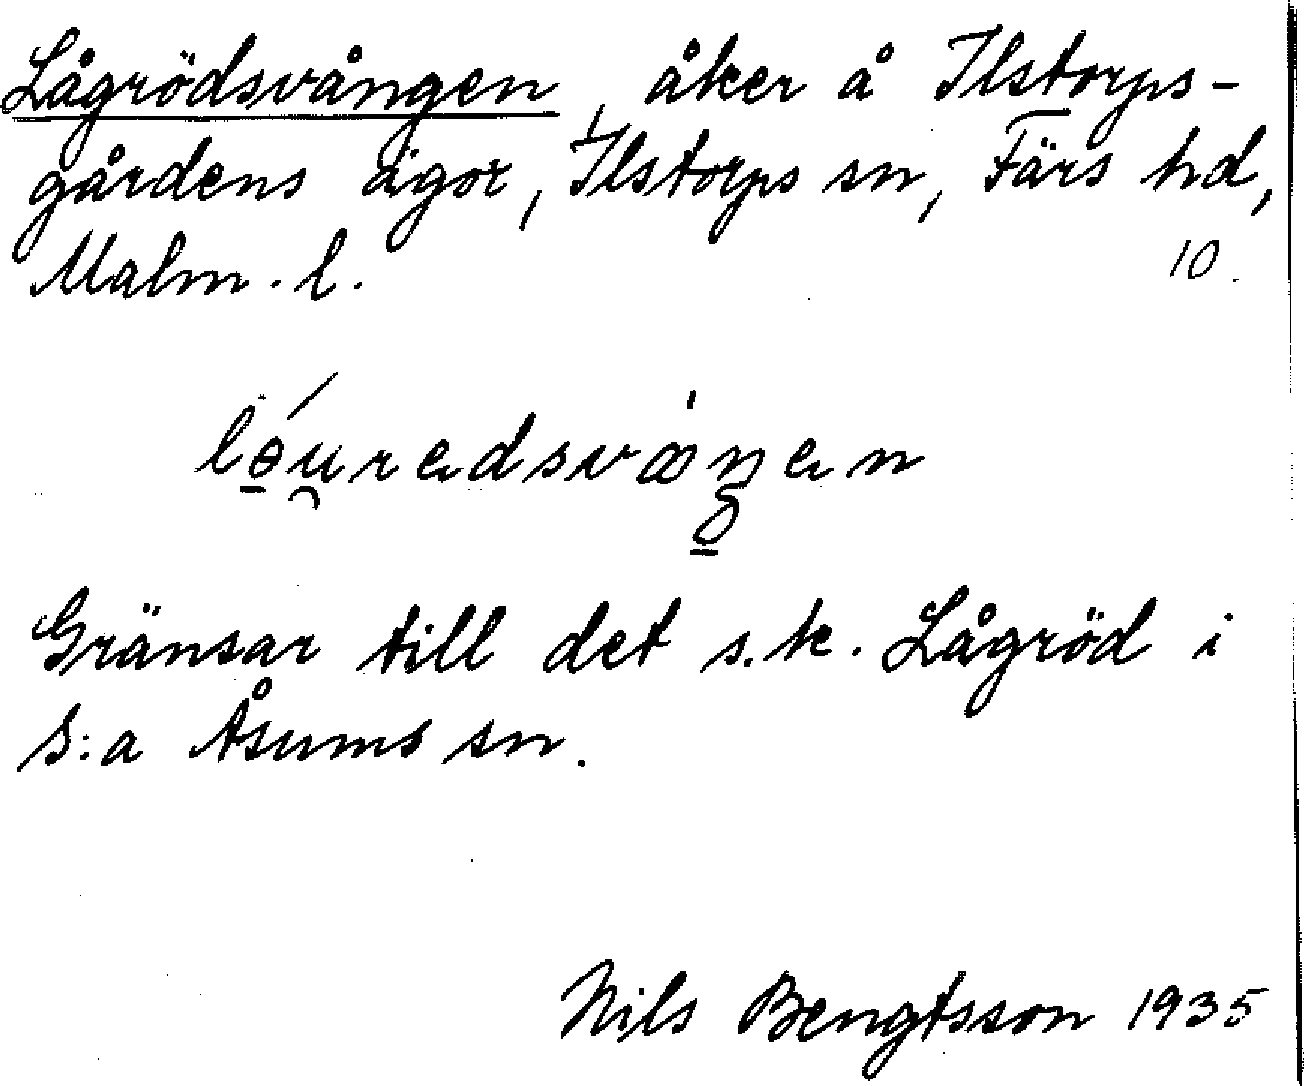 Lågrödsvången, åker å Ilstorps-
gårdens ägor, Ilstorps sn, Färs hd,
Malm. l. 10.
Gränsar till det s.k. Lågröd i
S:a Åsums sn.
Nils Bengtsson 1935